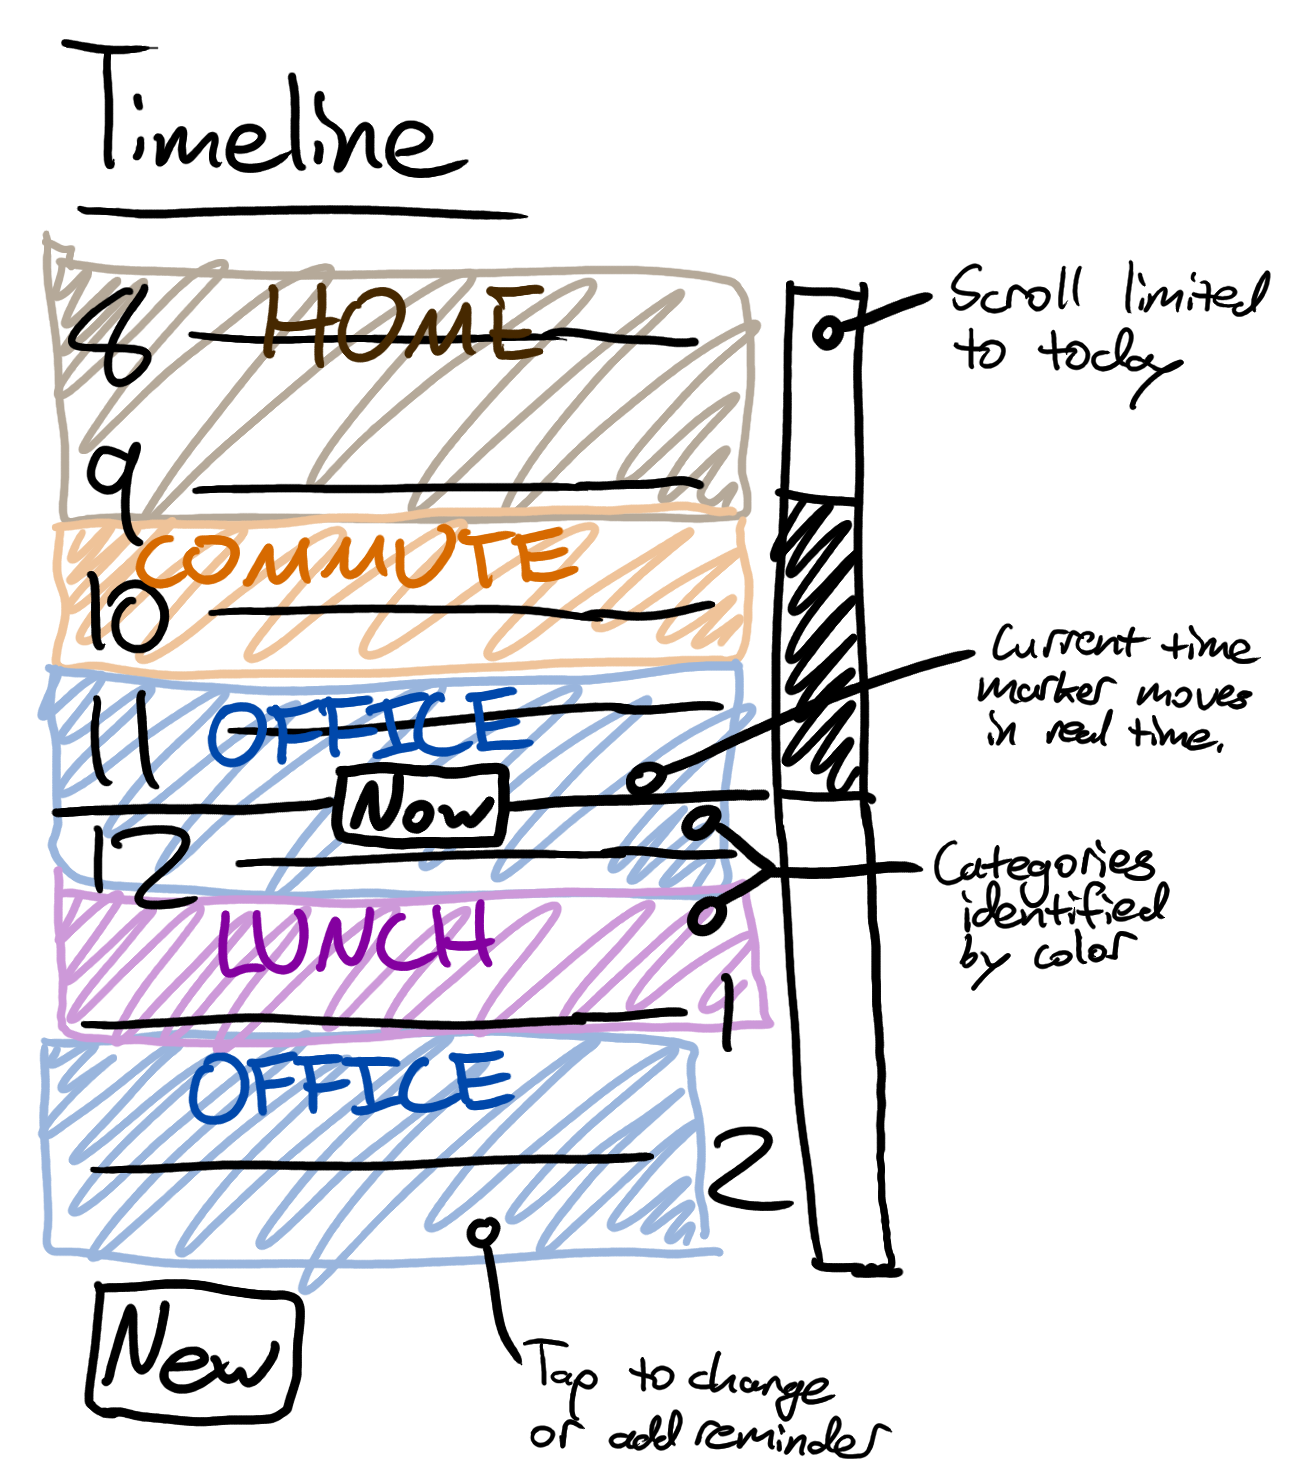 Timeline
8 HOME
9
COMMUTE
10
11 OFFICE
Now
12
LUNCH
1
OFFICE
2
New
Scroll limited
to today
Current time
marker moves
in real time.
Categories
identified
by color
Tap to change
or add reminder